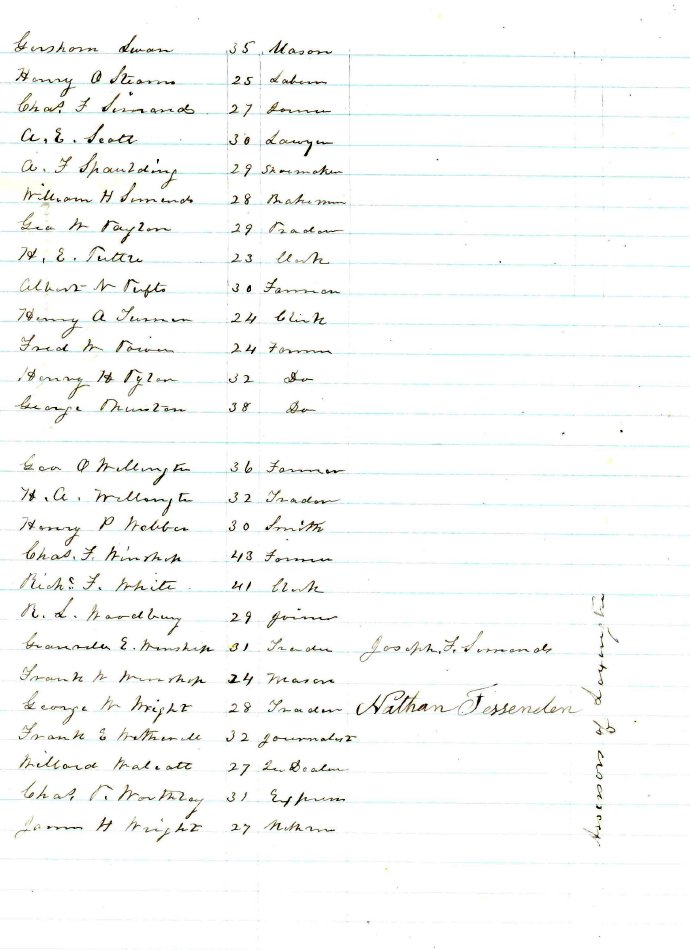 Gershom Swan 35 Mason
Henry O Stearns 25 Laborer
Chas. F Simonds 27 Farmer
A. E. Scott 30 Lawyer
A. F Spaulding 29 Shoemaker
William H Simonds 28 Brakeman
Geo W Taylor 29 Trader
H. E. Tuttle 23 Clerk
Albert N Tufts 30 Farmer
Henry A Turner 24 Clerk
Fred W Tower 24 Farmer
Henry H Tyler 32 Do
George Thurston 38 Do
Geo O Wellington 36 Farmer
H. A. Wellington 32 Trader
Henry P Webber 30 Smith
Chas. F. Winship 43 Farmer
Richd. F. White 41 Clerk
R. L. Woodbury 29 Joiner
E. Winship 31 Trader Joseph F. Simonds
Frank W Winship 24 Mason
George W Wright 28 Trader Nathan Fessenden
Frank E Wetherell 32 Journalist
Willard Walcott 27 Dealer
Chas. T. Worthley 31 Express
James H Wright 27
Assessors of Lexington